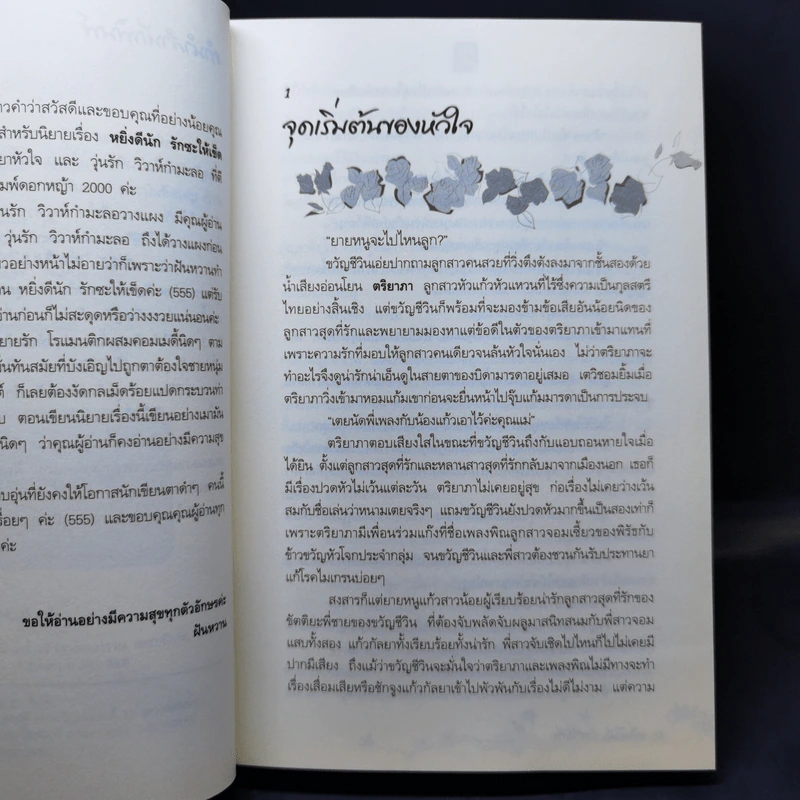 วคำว่าสวัสดีและขอบคุณที่อย่างน้อยคุณ
สำหรับนิยายเรื่อง หยิ่งดีนัก รักซะให้เข็ด
ยาหัวใจ และ วุ่นรัก วิวาห์กำมะลอ ที่ตี
มพ์ดอกหญ้า 2000 ค่ะ
นรัก วิวาห์กำมะลอวางแผง มีคุณผู้อ่าน
วุ่นรัก วิวาห์กำมะลอ ถึงได้วางแผงก่อน
วอย่างหน้าไม่อายว่าก็เพราะว่าฝันหวานทำ
น หยิ่งดีนัก รักซะให้เข็ดค่ะ (555) แต่รับ
่านก่อนก็ไม่สะดุดหรือว่างงงวยแน่นอนค่ะ
ยายรัก โรแมนติกผสมคอมเมดี้นิดๆ ตาม
ันทันสมัยที่บังเอิญไปถูกตาต้องใจชายหนุ่ม
ต์ ก็เลยต้องงัดกลเม็ดร้อยแปดกระบวนท่า
บ ตอนเขียนนิยายเรื่องนี้เขียนอย่างเมามัน
นิดๆ ว่าคุณผู้อ่านก็คงอ่านอย่างมีความสุข
บอุ่นที่ยังคงให้โอกาสนักเขียนตาดำๆ คนนี้
รื่อยๆ ค่ะ (555) และขอบคุณคุณผู้อ่านทุก
ค่ะ
ขอให้อ่านอย่างมีความสุขทุกตัวอักษรค่ะ
ฝันหวาน
1
จุดเริ่มต้นของหัวใจ
"ยายหนูจะไปไหนลูก?"
ขวัญชีวินเอ่ยปากถามลูกสาวคนสวยที่วิ่งตึงตังลงมาจากชั้นสองด้วย
น้ำเสียงอ่อนโยน ตริยาภา ลูกสาวหัวแก้วหัวแหวนที่ไร้ซึ่งความเป็นกุลสตรี
ไทยอย่างสิ้นเชิง แต่ขวัญชีวินก็พร้อมที่จะมองข้ามข้อเสียอันน้อยนิดของ
ลูกสาวสุดที่รักและพยายามมองหาแต่ข้อดีในตัวของตริยาภาเข้ามาแทนที่
เพราะความรักที่มอบให้ลูกสาวคนเดียวจนล้นหัวใจนั่นเอง ไม่ว่าตริยาภาจะ
ทำอะไรจึงดูน่ารักน่าเอ็นดูในสายตาของบิดามารดาอยู่เสมอ เตวิชอมยิ้มเมื่อ
ตริยาภาวิ่งเข้ามาหอมแก้มเขาก่อนจะยื่นหน้าไปจุ๊บแก้มมารดาเป็นการประจบ
"เตยนัดพี่เพลงกับน้องแก้วเอาไว้ค่ะคุณแม่"
ตริยาภาตอบเสียงใสในขณะที่ขวัญชีวินถึงกับแอบถอนหายใจเมื่อ
ได้ยิน ตั้งแต่ลูกสาวสุดที่รักและหลานสาวสุดที่รักกลับมาจากเมืองนอก เธอก็
มีเรื่องปวดหัวไม่เว้นแต่ละวัน ตริยาภาไม่เคยอยู่สุข ก่อเรื่องไม่เคยว่างเว้น
สมกับชื่อเล่นว่าหนามเตยจริงๆ แถมขวัญชีวินยังปวดหัวมากขึ้นเป็นสองเท่าก็
เพราะตริยาภามีเพื่อนร่วมแก๊งที่ชื่อเพลงพิณลูกสาวจอมเซี้ยวของพิรัชกับ
ข้าวขวัญหัวโจกประจำกลุ่ม จนขวัญชีวินและพี่สาวต้องชวนกันรับประทานยา
แก้โรคไมเกรนบ่อยๆ
สงสารก็แต่ยายหนูแก้วสาวน้อยผู้เรียบร้อยน่ารักลูกสาวสุดที่รักของ
ขัตติยะพี่ชายของขวัญชีวิน ที่ต้องพลัดจับผลูมาสนิทสนมกับพี่สาวจอม
แสบทั้งสอง แก้วกัลยาทั้งเรียบร้อยทั้งน่ารัก พี่สาวจับเชิดไปไหนก็ไปไม่เคยมี
ปากมีเสียง ถึงแม้ว่าขวัญชีวินจะมั่นใจว่าตริยาภาและเพลงพิณไม่มีทางจะทำ
เรื่องเสื่อมเสียหรือชักจูงแก้วกัลยาเข้าไปพัวพันกับเรื่องไม่ดีไม่งาม แต่ความ